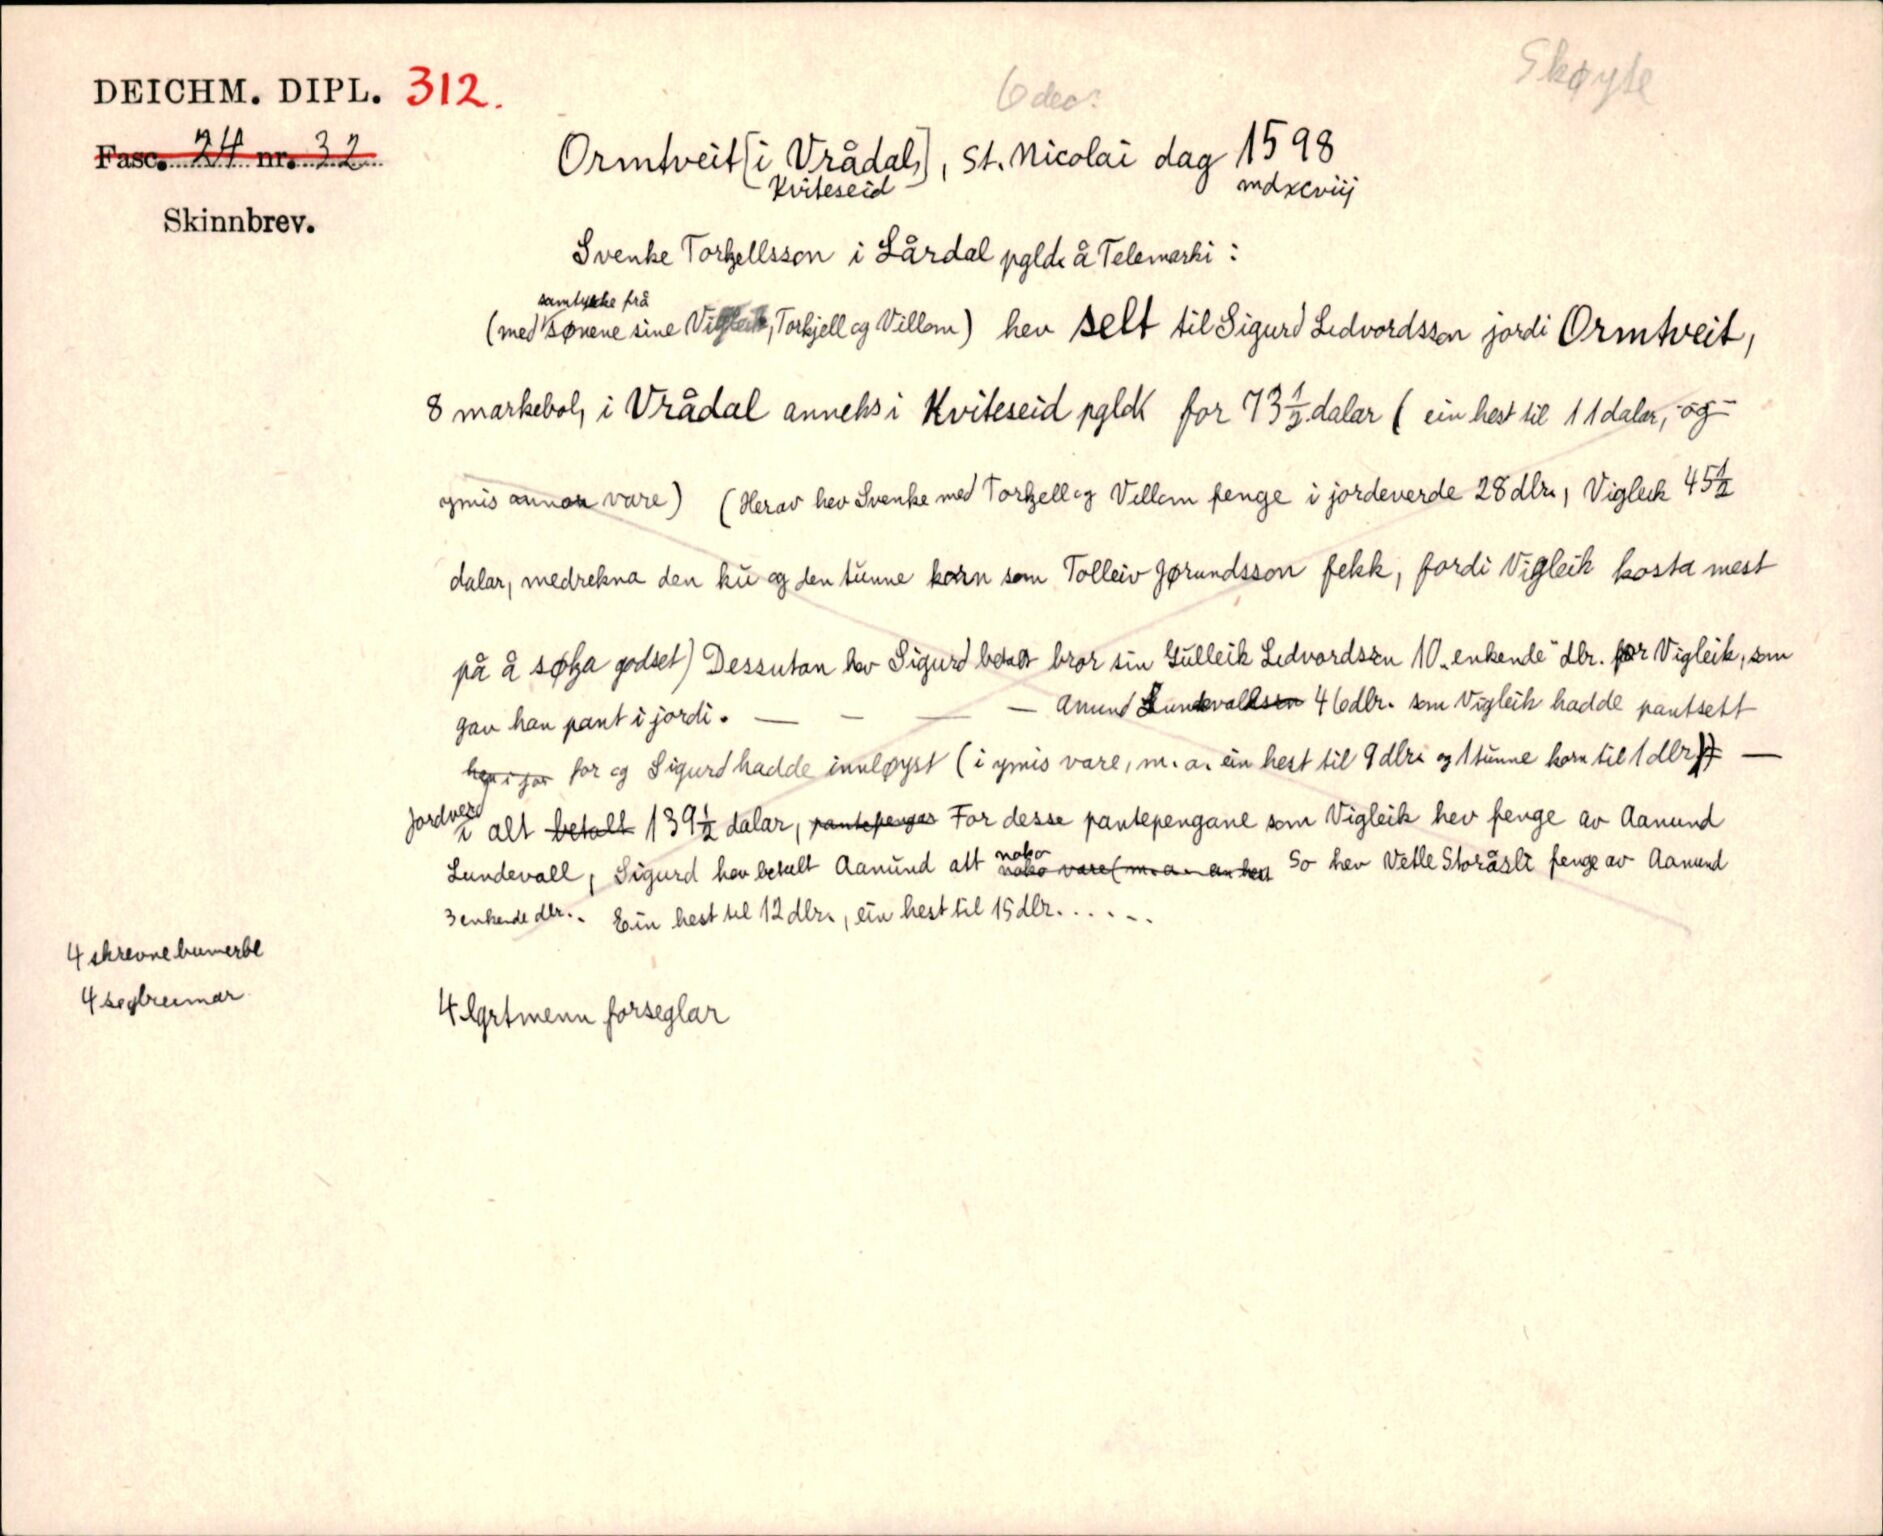 Skøyte
6 dec:
DEICHM. DIPL. 312.
Fasc. 24 nr. 32
Skinnbrev.
Ormtveit [i Vrådal,], St. Nicolai dag 1598
Kviteseid mdxcviij
Svenke Torkjellsson i Lårdal pgld. å Telemarki :
samtykke frå
(med sønene sine Vigleik, Torkjell og Villom) hev selt til Sigurd Ledvordsson jordi Ormtveit,
8 markebol, i Vrådal anneks i Kviteseid pgld for 73 1/2 dalar ( ein hest til 11 dalar, og
ymis annan vare) (Herav hev Svenke med Torkjell og Villom fenge i jordeverde 28 dlr., Vigleik 45 1/2
dalar, medrekna den ku og den tunne korn som Tolleiv Jørundsson fekk, fordi Vigleik kosta mest
på å søkja godset) Dessutan hev Sigurd betalt bror sin Gulleik Ledvordsson 10 „enkende" dlr. for Vigleik, som
gav han pant i jordi. — — — — Amund Lundevallsson 46 dlr. som Vigleik hadde pantsett
hev i jor for og Sigurd hadde innløyst (i ymis vare, m. a. ein hest til 9 dlr. og 1 tunne korn til 1 dlr)) —
Jordverd
i alt betalt 139 1/2 dalar, pantepengar For desse pantepengane som Vigleik hev fenge av Aanund
Lundevall, Sigurd hev betalt Aanund att noko
noko vare (m. a. ein hest So hev Vetle Storåsli fenge av Aanund
3 enkende dlr.. Ein hest til 12 dlr., ein hest til 15 dlr. . . . . .
4 skrevne bumerke
4 seglreimar
4 lgrtmenn forseglar